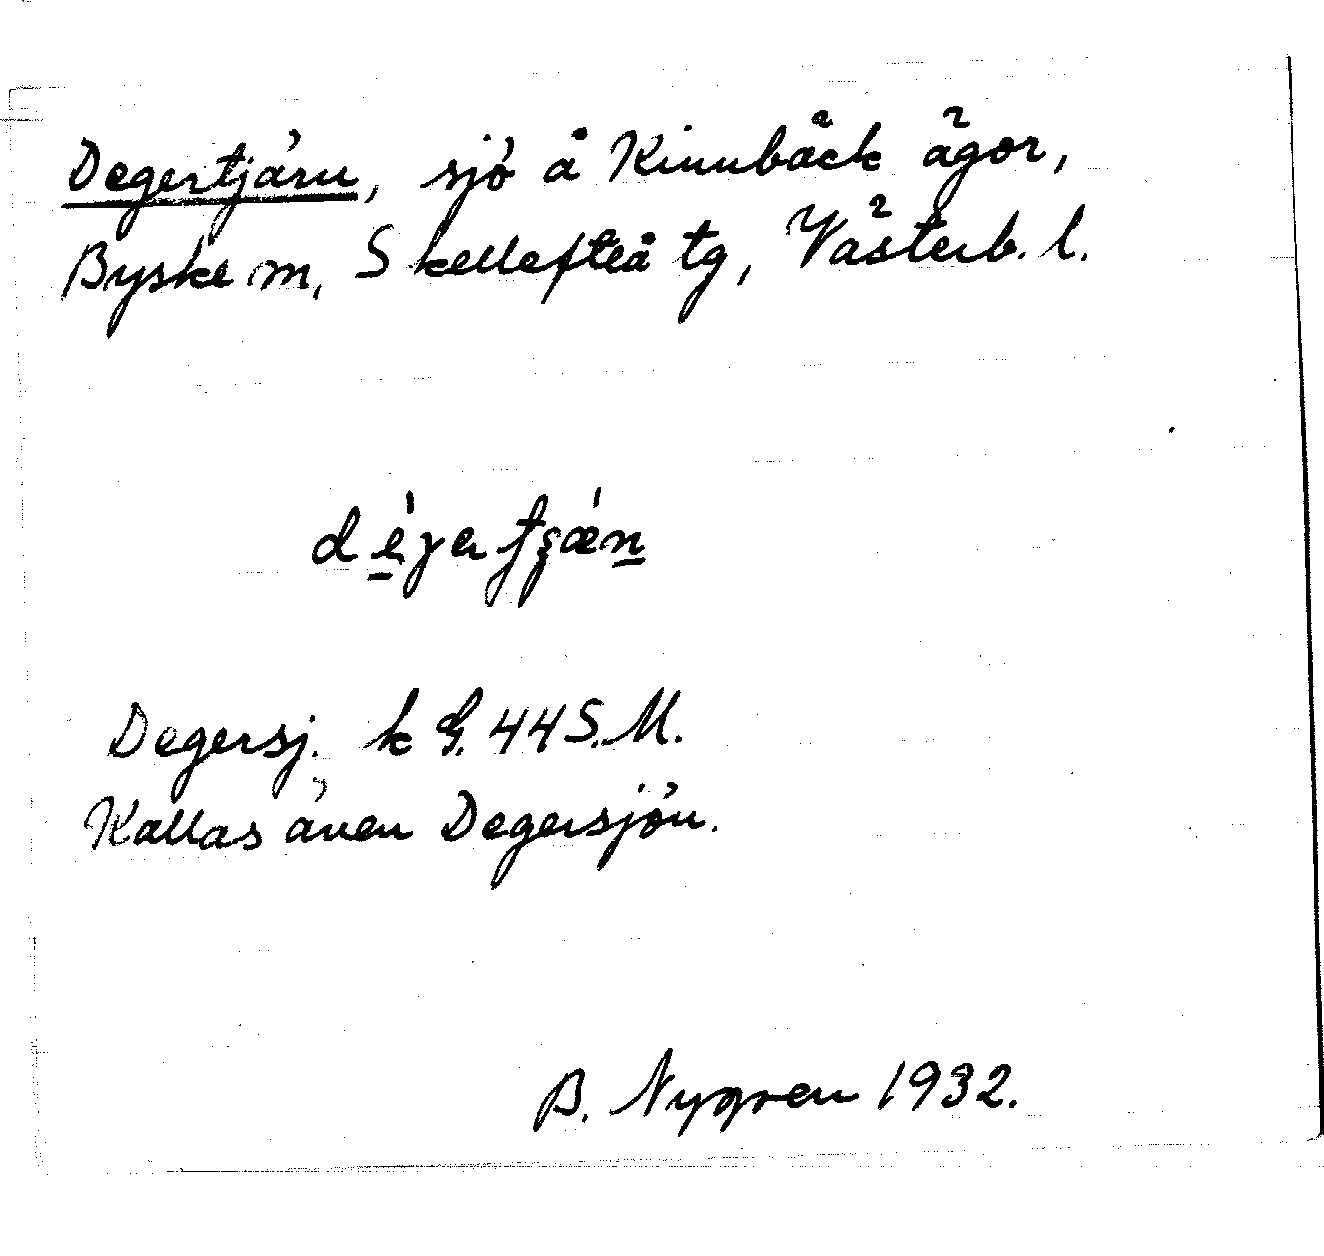 Degertjärn, sjö å Kinnbäck ägor,
Byske sn, Skellefteå tg, Västerb. l.
Degersj. k G. 44 S.M.
Kallas även Degersjön.
B. Nygren 1932.